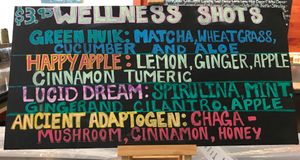 $3.95 WELLNESS SHOTS
GREEN HULK: MATCHA, WHEATGRASS,
CUCUMBER AND ALOE
HAPPY APPLE: LEMON, GINGER, APPLE
CINNAMON TUMERIC
LUCID DREAM: SPIRULINA, MINT,
GINGER AND CILANTRO, APPLE
ANCIENT ADAPTOGEN: CHAGA -
MUSHROOM, CINNAMON, HONEY